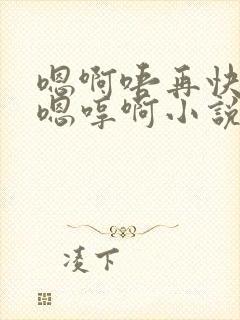 嗯啊唔再快
嗯哼啊小說
凌下